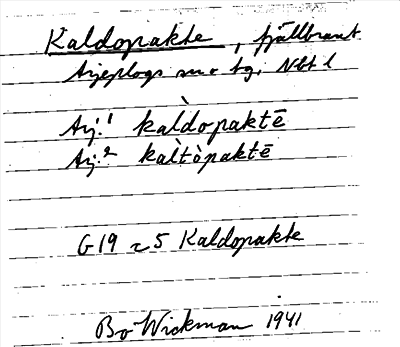 Kaldopakte, fjällbrant
Arjeplogs sn o tg. Nbt l
Arj.¹ kàldopaktē
Arj.² kaltòpaktē
G19 ~ 5 Kaldopakte
Bo Wickman 1941